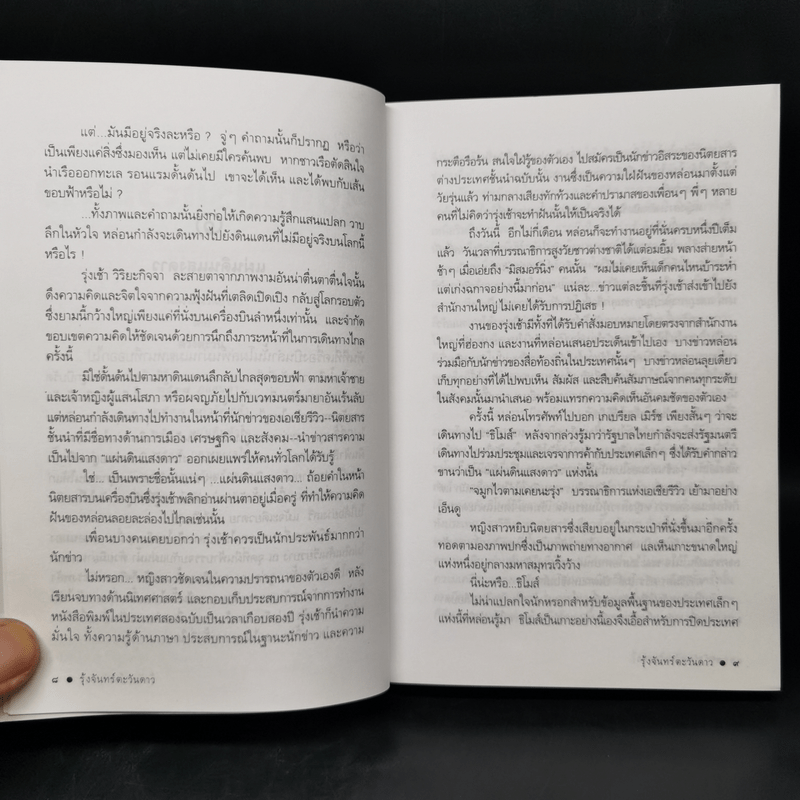 แต่...มันมีอยู่จริงละหรือ ? จู่ๆ คำถามนั้นก็ปรากฏ หรือว่า
เป็นเพียงแค่สิ่งซึ่งมองเห็น แต่ไม่เคยมีใครค้นพบ หากชาวเรือตัดสินใจ
นำเรือออกทะเล รอนแรมดั้นด้นไป เขาจะได้เห็น และได้พบกับเส้น
ขอบฟ้าหรือไม่ ?
...ทั้งภาพและคำถามนั้นยิ่งก่อให้เกิดความรู้สึกแสนแปลก วาบ
ลึกในหัวใจ หล่อนกำลังจะเดินทางไปยังดินแดนที่ไม่มีอยู่จริงบนโลกนี้
หรือไร !
รุ่งเช้า วิริยะกิจจา ละสายตาจากภาพงามอันน่าตื่นตาตื่นใจนั้น
ดึงความคิดและจิตใจจากความฟุ้งฝันที่เตลิดเปิดเปิง กลับสู่โลกรอบตัว
ซึ่งยามนี้กว้างใหญ่เพียงแค่ที่นั่งบนเครื่องบินลำหนึ่งเท่านั้น และจำกัด
ขอบเขตความคิดให้ชัดเจนด้วยการนึกถึงภาระหน้าที่ในการเดินทางไกล
ครั้งนี้
มิใช่ดั้นด้นไปตามหาดินแดนลึกลับไกลสุดขอบฟ้า ตามหาเจ้าชาย
และเจ้าหญิงผู้แสนโสภา หรือผจญภัยไปกับเวทมนตร์มายาอันเร้นลับ
แต่หล่อนกำลังเดินทางไปทำงานในหน้าที่นักข่าวของเอเชียรีวิว--นิตยสาร
ชั้นนำที่มีชื่อทางด้านการเมือง เศรษฐกิจ และสังคม--นำข่าวสารความ
เป็นไปจาก "แผ่นดินแสงดาว" ออกเผยแพร่ให้คนทั่วโลกได้รับรู้
ใช่... เป็นเพราะชื่อนั้นแน่ๆ ...แผ่นดินแสงดาว... ถ้อยคำในหน้า
นิตยสารบนเครื่องบินซึ่งรุ่งเช้าพลิกอ่านผ่านตาอยู่เมื่อครู่ ที่ทำให้ความคิด
ฝันของหล่อนลอยละล่องไปไกลเช่นนั้น
เพื่อนบางคนเคยบอกว่า รุ่งเช้าควรเป็นนักประพันธ์มากกว่า
นักข่าว
ไม่หรอก... หญิงสาวชัดเจนในความปรารถนาของตัวเองดี หลัง
เรียนจบทางด้านนิเทศศาสตร์ และกอบเก็บประสบการณ์จากการทำงาน
หนังสือพิมพ์ในประเทศสองฉบับเป็นเวลาเกือบสองปี รุ่งเช้าก็นำความ
มั่นใจ ทั้งความรู้ด้านภาษา ประสบการณ์ในฐานะนักข่าว และความ
๘ ● รุ้งจันทร์ตะวันดาว
กระตือรือร้น สนใจใฝ่รู้ของตัวเอง ไปสมัครเป็นนักข่าวอิสระของนิตยสาร
ต่างประเทศชั้นนำฉบับนั้น งานซึ่งเป็นความใฝ่ฝันของหล่อนมาตั้งแต่
วัยรุ่นแล้ว ท่ามกลางเสียงทักท้วงและคำปรามาสของเพื่อนๆ พี่ๆ หลาย
คนที่ไม่คิดว่ารุ่งเช้าจะทำฝันนั้นให้เป็นจริงได้
ถึงวันนี้ อีกไม่กี่เดือน หล่อนก็จะทำงานอยู่ที่นั่นครบหนึ่งปีเต็ม
แล้ว วันเวลาที่บรรณาธิการสูงวัยชาวต่างชาติได้แต่อมยิ้ม พลางส่ายหน้า
ช้าๆ เมื่อเอ่ยถึง "มิสมอร์นิ่ง" คนนั้น "ผมไม่เคยเห็นเด็กคนไหนบ้าระห่ำ
แต่เก่งฉกาจอย่างนี้มาก่อน" แน่ละ...ข่าวแต่ละชิ้นที่รุ่งเช้าส่งเข้าไปยัง
สำนักงานใหญ่ ไม่เคยได้รับการปฏิเสธ !
งานของรุ่งเช้ามีทั้งที่ได้รับคำสั่งมอบหมายโดยตรงจากสำนักงาน
ใหญ่ที่ฮ่องกง และงานที่หล่อนเสนอประเด็นเข้าไปเอง บางข่าวหล่อน
ร่วมมือกับนักข่าวของสื่อท้องถิ่นในประเทศนั้นๆ บางข่าวหล่อนลุยเดี่ยว
เก็บทุกอย่างที่ได้ไปพบเห็น สัมผัส และสืบค้นสัมภาษณ์จากคนทุกระดับ
ในสังคมนั้นมานำเสนอ พร้อมแทรกความคิดเห็นอันคมชัดของตัวเอง
ครั้งนี้ หล่อนโทรศัพท์ไปบอก เกเบรียล เมิร์ช เพียงสั้นๆ ว่าจะ
เดินทางไป "ชิโมส์" หลังจากล่วงรู้มาว่ารัฐบาลไทยกำลังจะส่งรัฐมนตรี
เดินทางไปร่วมประชุมและเจรจาการค้ากับประเทศเล็กๆ ซึ่งได้รับคำกล่าว
ขานว่าเป็น "แผ่นดินแสงดาว" แห่งนั้น
"จมูกไวตามเคยนะรุ่ง" บรรณาธิการแห่งเอเชียรีวิว เย้ามาอย่าง
เอ็นดู
หญิงสาวหยิบนิตยสารซึ่งเสียบอยู่ในกระเป๋าที่นั่งขึ้นมาอีกครั้ง
ทอดตามองภาพปกซึ่งเป็นภาพถ่ายทางอากาศ แลเห็นเกาะขนาดใหญ่
แห่งหนึ่งอยู่กลางมหาสมุทรเวิ้งว้าง
นี่น่ะหรือ...ชิโมส์
ไม่น่าแปลกใจนักหรอกสำหรับข้อมูลพื้นฐานของประเทศเล็กๆ
แห่งนี้ที่หล่อนรู้มา ชิโมส์เป็นเกาะอย่างนี้เองจึงเอื้อสำหรับการปิดประเทศ
รุ้งจันทร์ตะวันดาว ● ๙